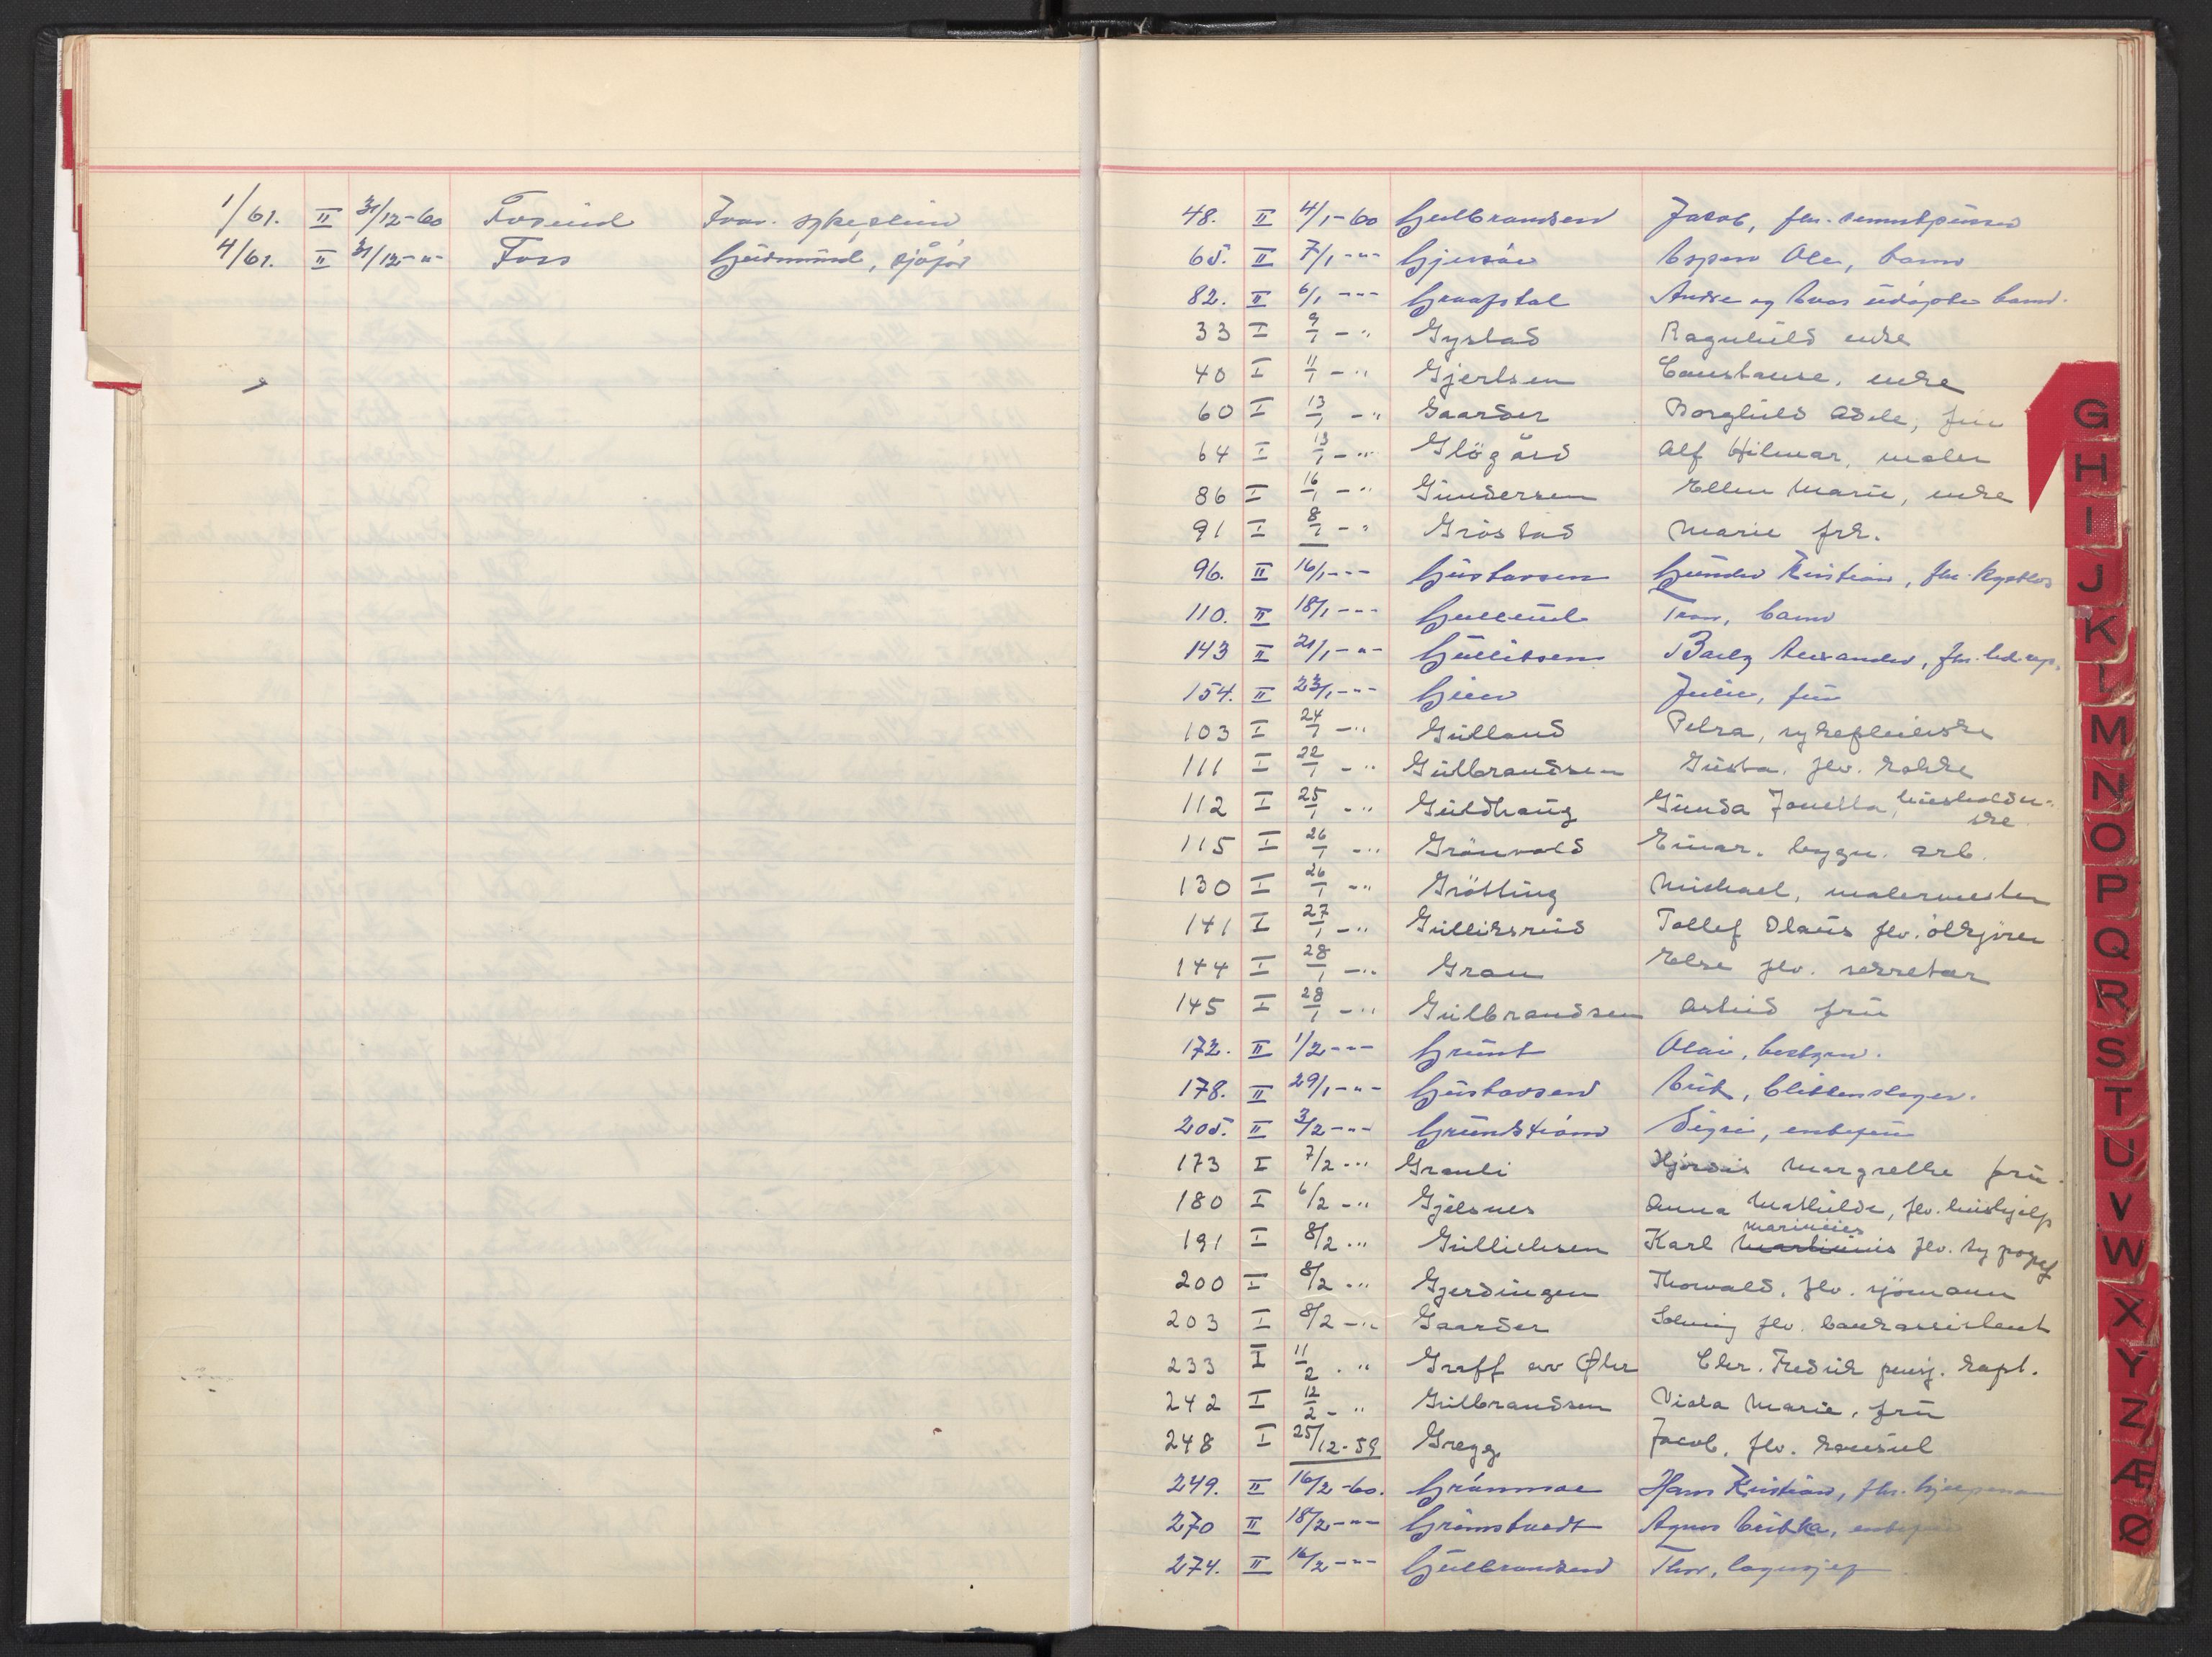 1/61. II 31/12-60 Foseid Ivar. sykepleier
4/61. II 31/12-"- Foss Gudmund, sjåfør
48. II 4/1-60 Gulbrandsen Jacob, fhv.
65. II 7/1-"- Gjersøe Espen Ole, barn
82. II 6/1-"- Graafstal Andre og Even udøpte barn.
33 I 9/1-" Gystad Ragnhild enke
40 I 11/1-" Gjertsen Constance, enke
60 I 13/1-" Gaarder Borghild Adele, frue
64 I 13/1-" Glögård Alf Hilmar, maler
86 I 16/1-" Gundersen Ellen Marie, enke
91 I 8/1-" Gröstad Marie frk.
96. II 16/1-"- Gustavsen Gunder Kristian, fhv.
110. II 18/1-"- Gullerud Tron, barn
143 II 21/1-"- Gullitsen Alexander, fhv.
154. II 23/1-"- Gien Julie, fru
103 I 24/1-" Gulland Petra, sykepleierske
111 I 22/1-" Gulbrandsen Gusta. flv. kokke
112 I 25/1-" Guldhaug Gunda Jonetta, husholder-
ske
115 I 26/1-" Grönvold Einar. bygn. arb.
130 I 26/1-" Grötting Michael, malermester
141 I 27/1-" Gulliksrud Tollef Olaus flv. ölkjörer
144 I 28/1-" Gran Else flv. sekretær
145 I 28/1-" Gulbrandsen Astrid fru
172. II 1/2-"- Grundt Olai, bestyrer.
178. II 29/1-"- Gustavsen Erik, blikkenslager.
205. II 3/2-"- Grundstrøm Sigri, enkefru
173 I 7/2-" Grauli Hjördis Margrethe fru.
180 I 6/2-" Gjelsnes Anna Mathilde, flv. hushjelp
Marinius
191 I 8/2-" Gullichsen Karl Martinius flv. typograf
200 I 8/2-" Gjerdingen Thorvald. flv. sjömann
203 I 8/2-" Gaarder Solveig flv. bankassistent
233 I 11/2-" Graff Chr. Fredrik pensj. kapt.
242 I 12/2-" Gulbrandsen Viola Marie, fru
248 I 25/12-59 Gregg Jacob. flv. konsul
249. II 16/2-60. Grønmoe Hans Kristian, fhv.
270 II 18/2-"- Grimstvedt Agnes
274. II 16/2-"- Gulbrandsen Thor, lagersjef
G
H
I
J
K
L
M
N
O
P
Q
R
S
T
U
V
W
X
Y
Z
Æ
Ø